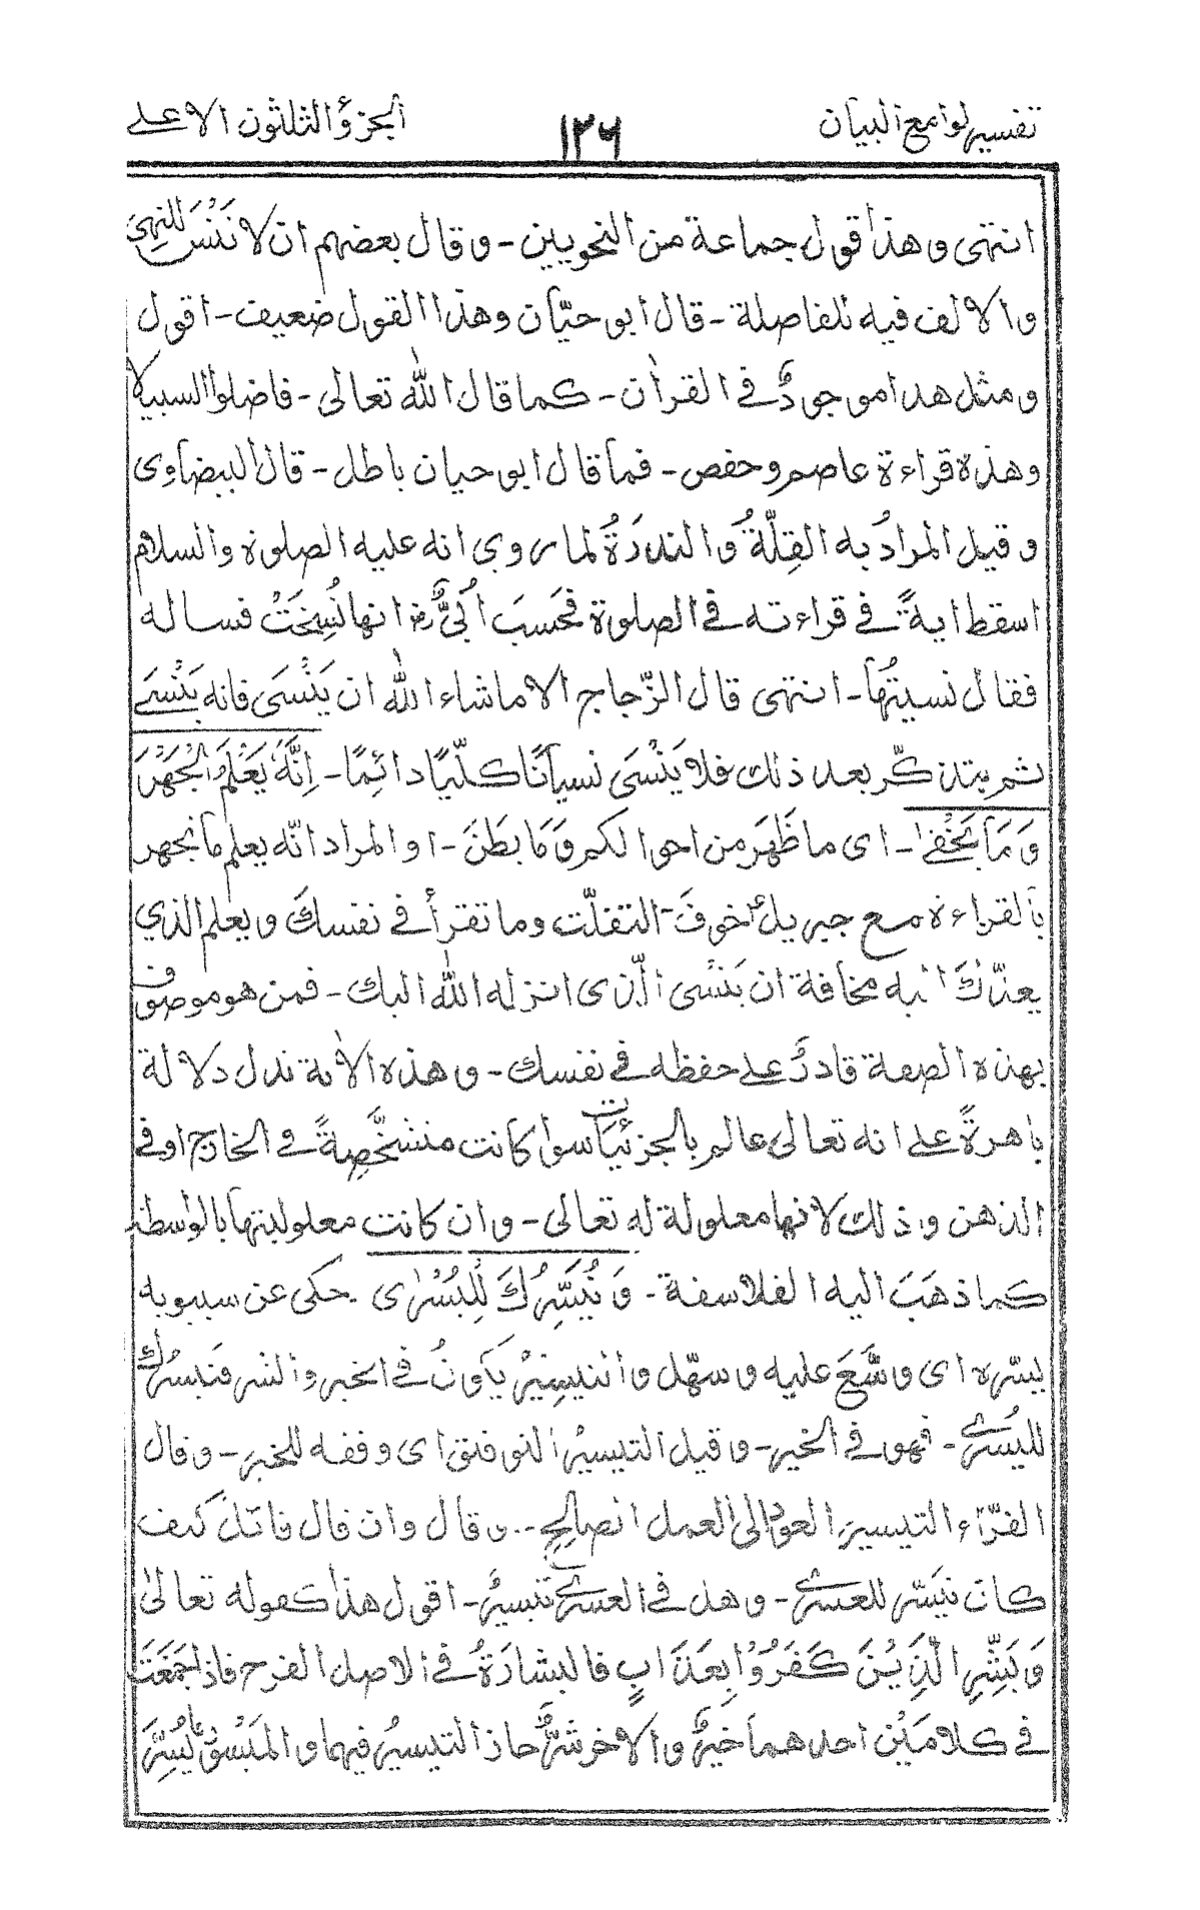 تفسير لوامع البيان
١٢٦
الجزؤ الثلثون الاعلى
انتهى وهذا قول جماعة من النحويين - وقال بعضهم ان لا تَنْسَ للنهى
والالف فيه للفاصلة - قال ابو حيّان وهذا القول ضعيف - اقول
ومثل هذا موجودٌ في القرآن - كما قال الله تعالى - فاضلوا السبيلا
وهذه قراءة عاصم وحفص - فما قال ابو حيان باطل - قال البيضاوى
وقيل المرادُ به القِلّةُ والندرَةُ لما روى انه عليه الصلوة والسلام
اسقط ايةً في قراءته في الصلوة فحَسَبَ اُبَىٌّ رض انها نُسِخَتْ فساله
فقال نسيتُها - انتهى قال الزّجاج الا ماشاء الله ان يَنْسَى فانه يَنْسَى
ثم يتذكّر بعد ذلك فلا يَنْسَى نسيانًا كلّيًا دائِمًا - اِنَّهٗ يَعْلَمُ الْجَهْرَ
وَمَا يَخْفٰى - اى ما ظَهَرَ من احوالكم وَمَا بطَنَ - او المراد انّه يعلم ما نجهر
بالقراءة مع جبريلؑ خوفَ التفلّت وما تقرأ في نفسك ويعلم الذي
يعذّك به مخافة ان يَنْسَى الّذى انزله الله اليك - فمن هو موصوف
بهذه الصفة قادرٌ على حفظه في نفسك - وهذه الاٰية تدل دلالة
باهرةً على انه تعالى عالم بالجزئيات سوا كانت متشخّصِةً في الخارج او في
الذهن وذلك لانها معلولة له تعالى - وان كانت معلوليتها بالواسطة
كما ذهَبَ اليه الفلاسفة - وَنُيَسِّرُكَ لِلْيُسْرٰى - حكى عن سيبويه
يسّره اى وسَّعَ عليه وسهّل والتيسِيْرُ يكونُ في الخير والشر فنيسرُك
لليُسْرى - فهو في الخير - وقيل التيسيرُ التوفيق اى وفقه للخير - وقال
الفرّاء التيسير العود الى العمل الصالح - وقال وان قال قائل كيف
كان نيَسّر للعسرى - وهل في العسرى تيسيرٌ - اقول هذا كقوله تعالىٰ
وَبَشِّرِ الَّذِيْنَ كَفَرُوْا بِعَذَابٍ فالبشارَةُ في الاصل الفرح فاذا جمَعَتَ
في كلامَيْن احدهما خيرٌ والاخر شرٌّ جاز التيسيرُ فيهما و المَبْسُوْقُ يُسِّرَ